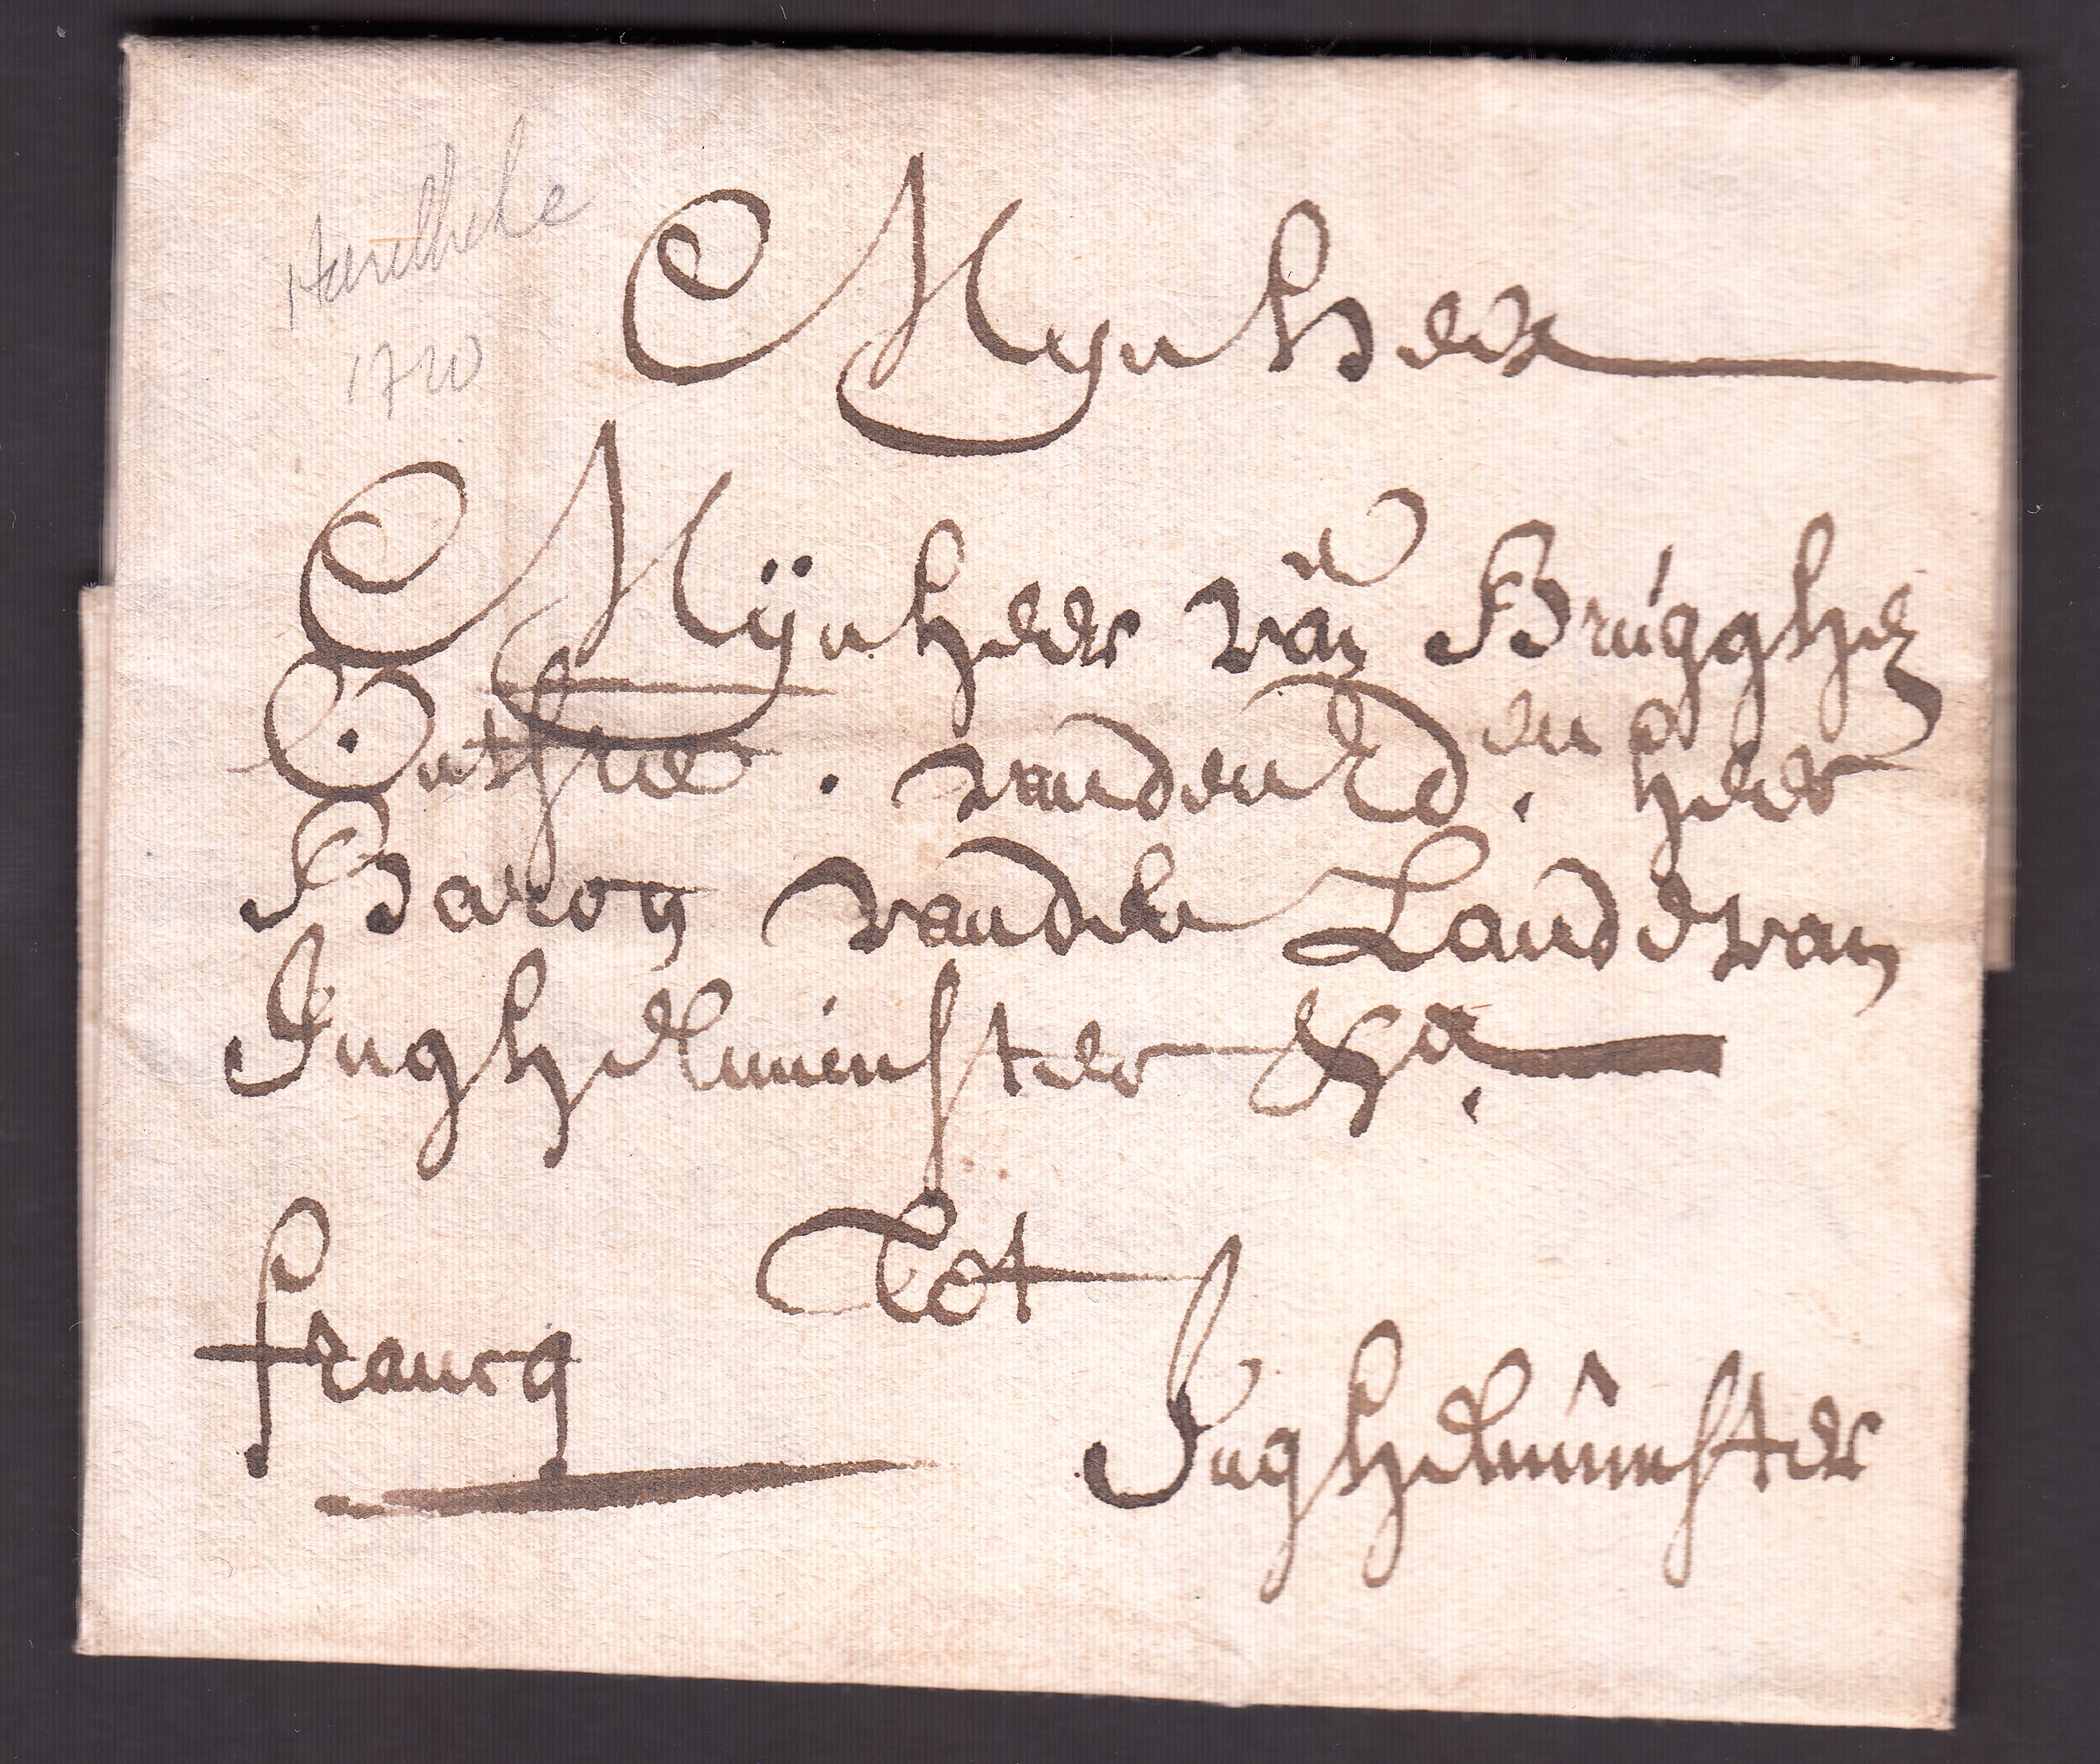 Harelbeke
1720
Mynheer
Mÿnheer van Brúgghen
Ontfher. vanden Ed.en heer
Baron vanden Lande van
Inghelmúnster &a.
Tot
francq
Inghelmúnster